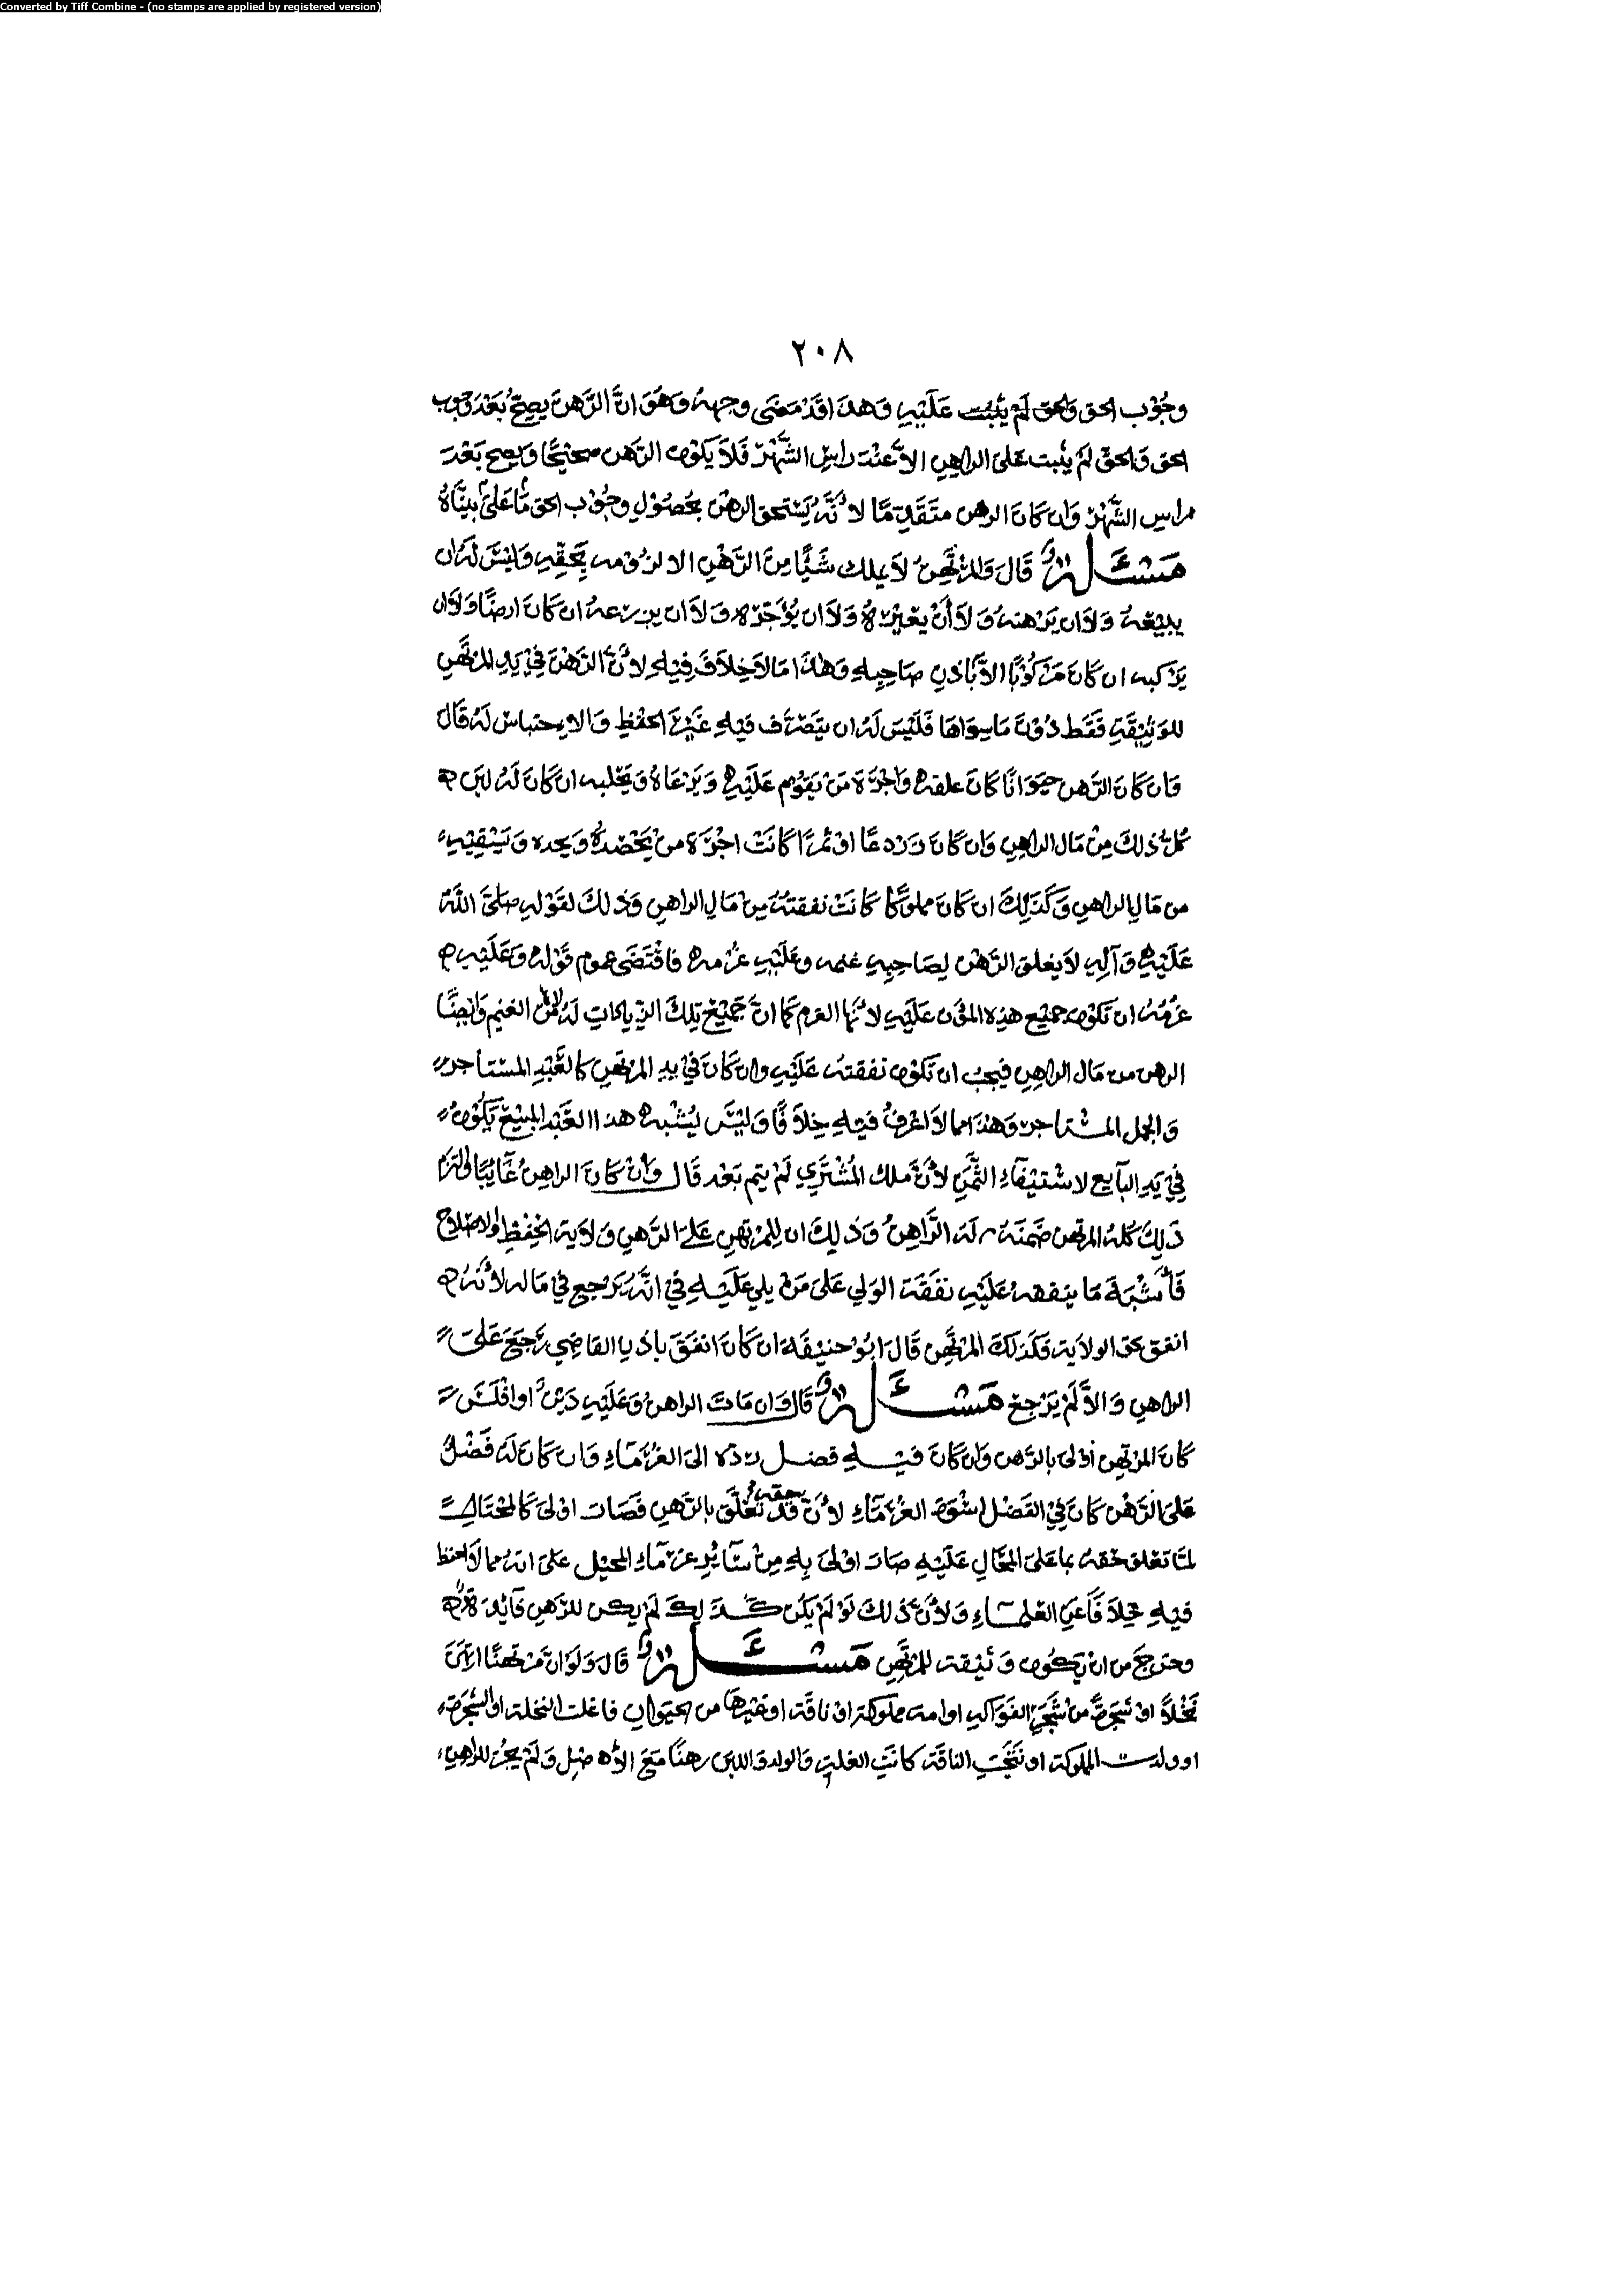 Converted by Tiff Combine - (no stamps are applied by registered version)
٢٠٨
وجُوْب الحق والحق لم يثبت عَلَيْهِ وَهذا قَدْ مَضَى وجهه وَهُوَ انَّ الرَّهنَ يصحّ بَعْدَ وجوب
الحق وَالحقّ لَمْ يثبت عَلَى الراهِنِ الاَّ عنْدَ راسِ الشَّهْرِ فَلاَ يَكُوْن الرَّهن صحيْحًا وَيصح بَعْدَ
راسِ الشَّهْرِ وَان كَانَ الرهن متَقَدِّمًا لاَنَّهُ يَسْتحق الرهْنَ بحصُوْلِ وجُوْب الحق مَا عَلىَ بيَّنَاهُ
مَسْئَلَةٌ قَالَ وَالمُرْتَهِنُ لاَ يملك شَيْئًا مِنَ الرَّهْنِ الا لزُوْمه بِحَقِّهِ وَلَيْسَ لَهُ ان
يبيْعَهُ وَلاَ ان يَرْهنهُ وَلاَ أَنْ يعيْرَهُ وَلاَ ان يُؤَجّره وَلاَ ان يزرعهُ ان كَانَ ارضًا وَلاَ ان
يَرْكبه ان كَانَ مَرْكُوْبًا الاَّ بَاذنِ صَاحِبِهِ وَهذا مَا لاَ خِلاَفَ فِيْهِ لاَنَّ الرَّهْنَ فِيْ يَدِ المرْتَهِنِ
للوَثِيْقَةِ فَقَط دُوْنَ مَا سِوَاهَا فَلَيْسَ لَهُ ان يتَصَرَّف فيْهِ غَيْرَ الحفْظِ وَالاِحتباس لَهُ قَال
وَان كَانَ الرَّهن حيَوَانًا كَانَ علفه وَاجْرَة مَنْ يَقُوْم عَلَيْهِ وَيَرْعَاهُ وَيَحْلبه ان كَانَ لَهُ لبَن
كُلّ ذلكَ مِنْ مَال الراهِنِ وَان كَانَ زَرْعًا اوْ ثمرًا كَانَتْ اجْرَة منْ يَحْصدهُ وَيجده وَيَسْقِيْهِ
من مَالِ الراهِنِ وَكَذلِكَ ان كَانَ مملوْكًا كَانَتْ نفقتهُ مِنْ مَالِ الراهِنِ وَذلكَ لقَوْلِهِ صَلىَّ اللَّهُ
عَلَيْهِ وَآلِهِ لاَ يغلق الرَّهْن لِصَاحِبِهِ غنمه وعَلَيْهِ غرْمه فَاقْتَضَى عموم قَوْله وَعَلَيْهِ
غرْمُهُ ان تَكُوْن جميْع هذِهِ المؤن عَلَيْهِ لاَنَّهَا الغرم كَمَا انَّ جَميْعَ تِلكَ الزّيادَاتِ لَهُ لاَنَّهَا من الغنم وَايضًا
الرهن من مَال الراهِنِ فيجبُ ان تَكُوْن نفقتهُ عَلَيْهِ وان كَانَ فيْ يدِ المرْتهنِ كَالعَبْدِ المسْتاجر
وَالجمل المستاجر وَهذا مما لاَ اعْرِفُ فيْهِ خِلاَفًا وَلَيْسَ يُشْبه هذا العَبْد المبيْعَ يَكُوْنُ
فِيْ يَدِ البَآيع لاسْتيْفَآءِ الثَّمَنِ لاَنَّ ملك المُشْتَرِي لَمْ يتم بَعْد قَال وَانْ كَانَ الراهِنُ غَآئِبًا وَالتزَم
ذَلِكَ كلهُ المرتهن ضَمنَهُ لَهُ الرَّاهِنُ وَذلِكَ ان لِلمُرْتهنِ عَلىَ الرَّهنِ وَلاَية الحِفْظِ وَالاصْلاَح
فَأَشْبَهَ مَا ينفقهُ عَلَيْهِ نفَقَة الوَلي عَلىَ مَنْ يلي عَلَيْهِ فيْ انَّهُ يَرْجِع في مَاله لاَنَّهُ
انفق بحق الولاَية فكَذلكَ المرْتَهِن قَالَ ابُوْ حنيْفَةَ ان كَانَ انفَقَ باذن القَاضِي رَجَعَ عَلىَ
الراهِنِ وَالاَّ لَمْ يَرْجِعْ مَسْئَلَةٌ قَالَ وَان مَاتَ الراهنُ وَعَلَيْهِ دَيْنٌ او افْلَسَ
كَانَ المرْتَهِن اَوْلىَ بالرَّهن وَان كَانَ فيْهِ فضل رده الىَ الغُرَمَآءِ وَان كَانَ لَهُ فَضْلٌ
عَلىَ الرَّهْن كَانَ فِي الفَضْل اسْوَة الغُرَمَآءِ لاَنّ حقه قدْ تعَلَّقَ بالرَّهنِ فَصَارَ اوْلىَ كَالمحْتَال
لمّا تعَلق حقهُ بما عَلىَ المحَالِ عَلَيْهِ صَارَ اوْلىَ بِهِ مِنْ سَآئِرِ غرَمَآءِ المحيْل عَلىَ انهُ مما لاَ احفظ
فيْهِ خِلاَفًا عَنِ العُلمَآءِ وَلاَنَّ ذلكَ لَوْ لَمْ يَكُن كَذلِكَ لَمْ يكن للرَّهنِ فَآئِدَة
وخرَجَ من انْ يَكُون وَثيْقة للمُرْتَهنِ مَسْئَلَةٌ قَالَ وَلَوْ انَّ مُرْتهنًا ارْتَهَنَ
نَخْلاً اوْ شَجَرَةً منْ شَجَرِ الفَوَاكِهِ او امة مملوكة اوْ ناقَة اوْ غيْرهَا من الحيَوَانِ فَاغلت النخلة او الشَّجَرَة
او ولدت المملوكة اوْ نتجَتِ الناقَة كانَتِ الغلة وَالولد وَاللبن رهنًا مَعَ الاَصْلِ وَلَمْ يجُز للراهِنِ